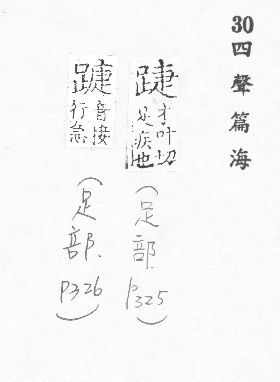 30四聲篇海
踕 才叶切
足疾也
(足部 P325)
音接
行急
(足部. P326)